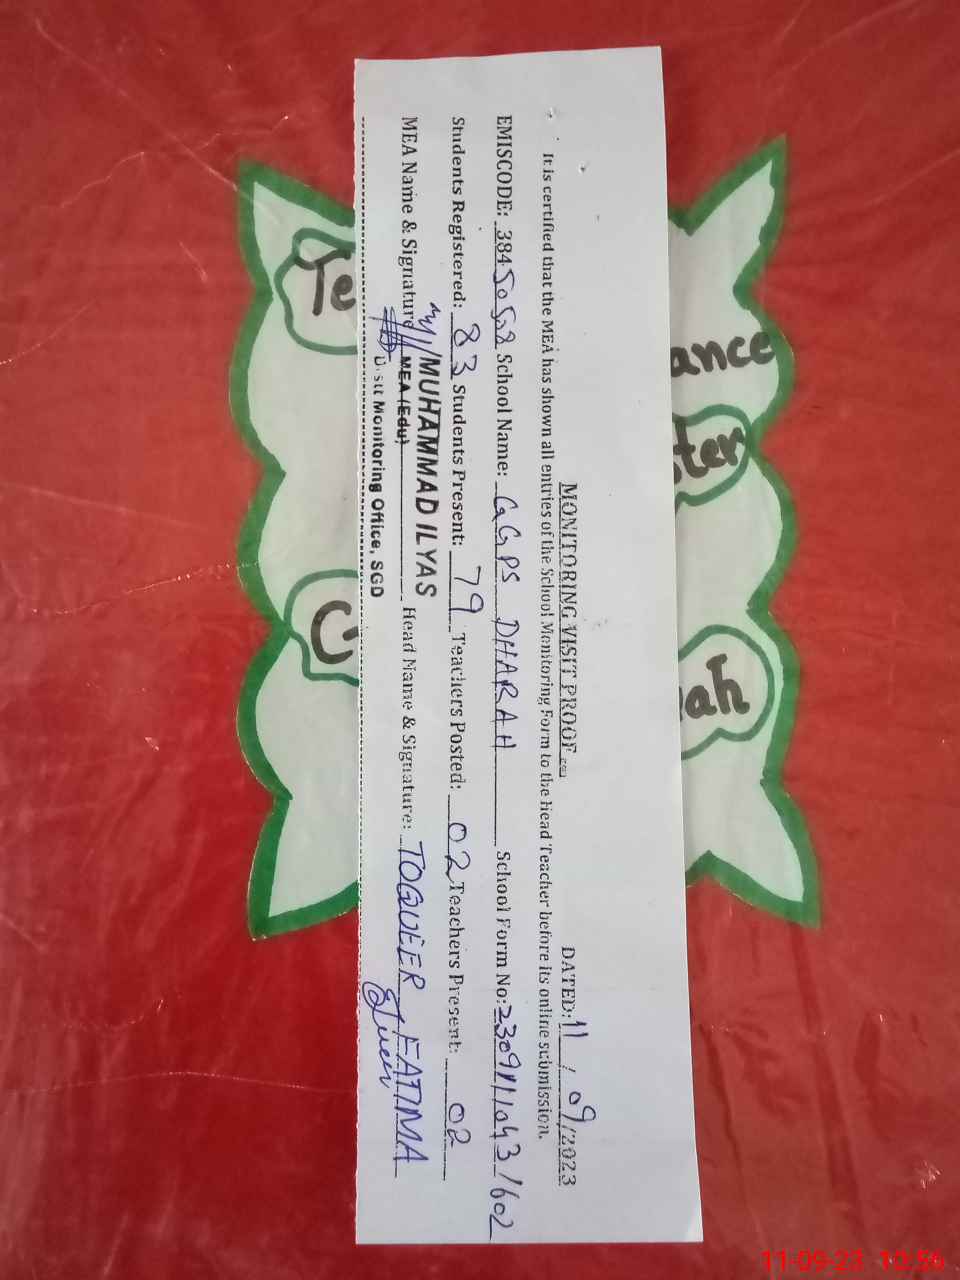 MONITORING VISIT PROOF
DATED: 11 / 09/2023
It is certified that the MEA has shown all entries of the School Monitoring Form to the Head Teacher before its online submission.
EMISCODE: 384 School Name: GGPS DHARAH School Form No:
Students Registered: 83 Students Present: 79 Teachers Posted: 02 Teachers Present: 02
MEA Name & Signature MUHAMMAD ILYAS Head Name & Signature: TOQUEER FATIMA
MEA (Edu)
Distt Monitoring Office, SGD
Te
ance
ter
C
ah
11-09-23 10:56